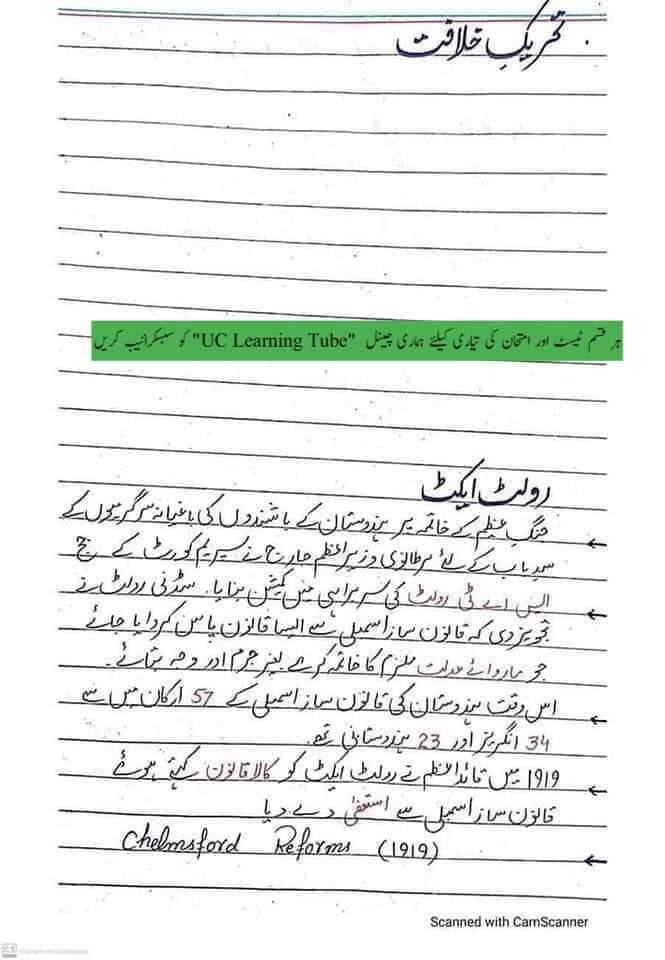 تحریکِ خلافت
ہر قسم ٹیسٹ اور امتحان کی تیاری کیلئے ہماری چینل "UC Learning Tube" کو سبسکرائیب کریں
رولٹ ایکٹ
جنگِ عظیم کے خاتمہ پر ہندوستان کے باشندوں کی باغیانہ سرگرمیوں کے
سدِ باب کے لئے برطانوی وزیراعظم جارج نے سپریم کورٹ کے جج
ایس اے ٹی رولٹ کی سربراہی میں کمیشن بنایا۔ سڈنی رولٹ نے
تجویز دی کہ قانون ساز اسمبلی سے ایسا قانون پاس کروایا جائے
جو ماروائے عدلت ملزم کا خاتمہ کرے بغیر جرم اور وجہ بتائے۔
اس وقت ہندوستان کی قانون ساز اسمبلی کے 57 ارکان میں سے
34 انگریز اور 23 ہندوستانی تھے۔
1919 میں قائداعظم نے رولٹ ایکٹ کو کالا قانون کہتے ہوئے
قانون ساز اسمبلی سے استعفیٰ دے دیا
Chelmsford Reforms (1919)
Scanned with CamScanner
CS Scanned with CamScanner